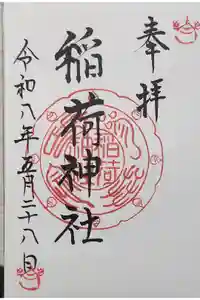 奉拝
稲荷神社
令和八年五月二十八日